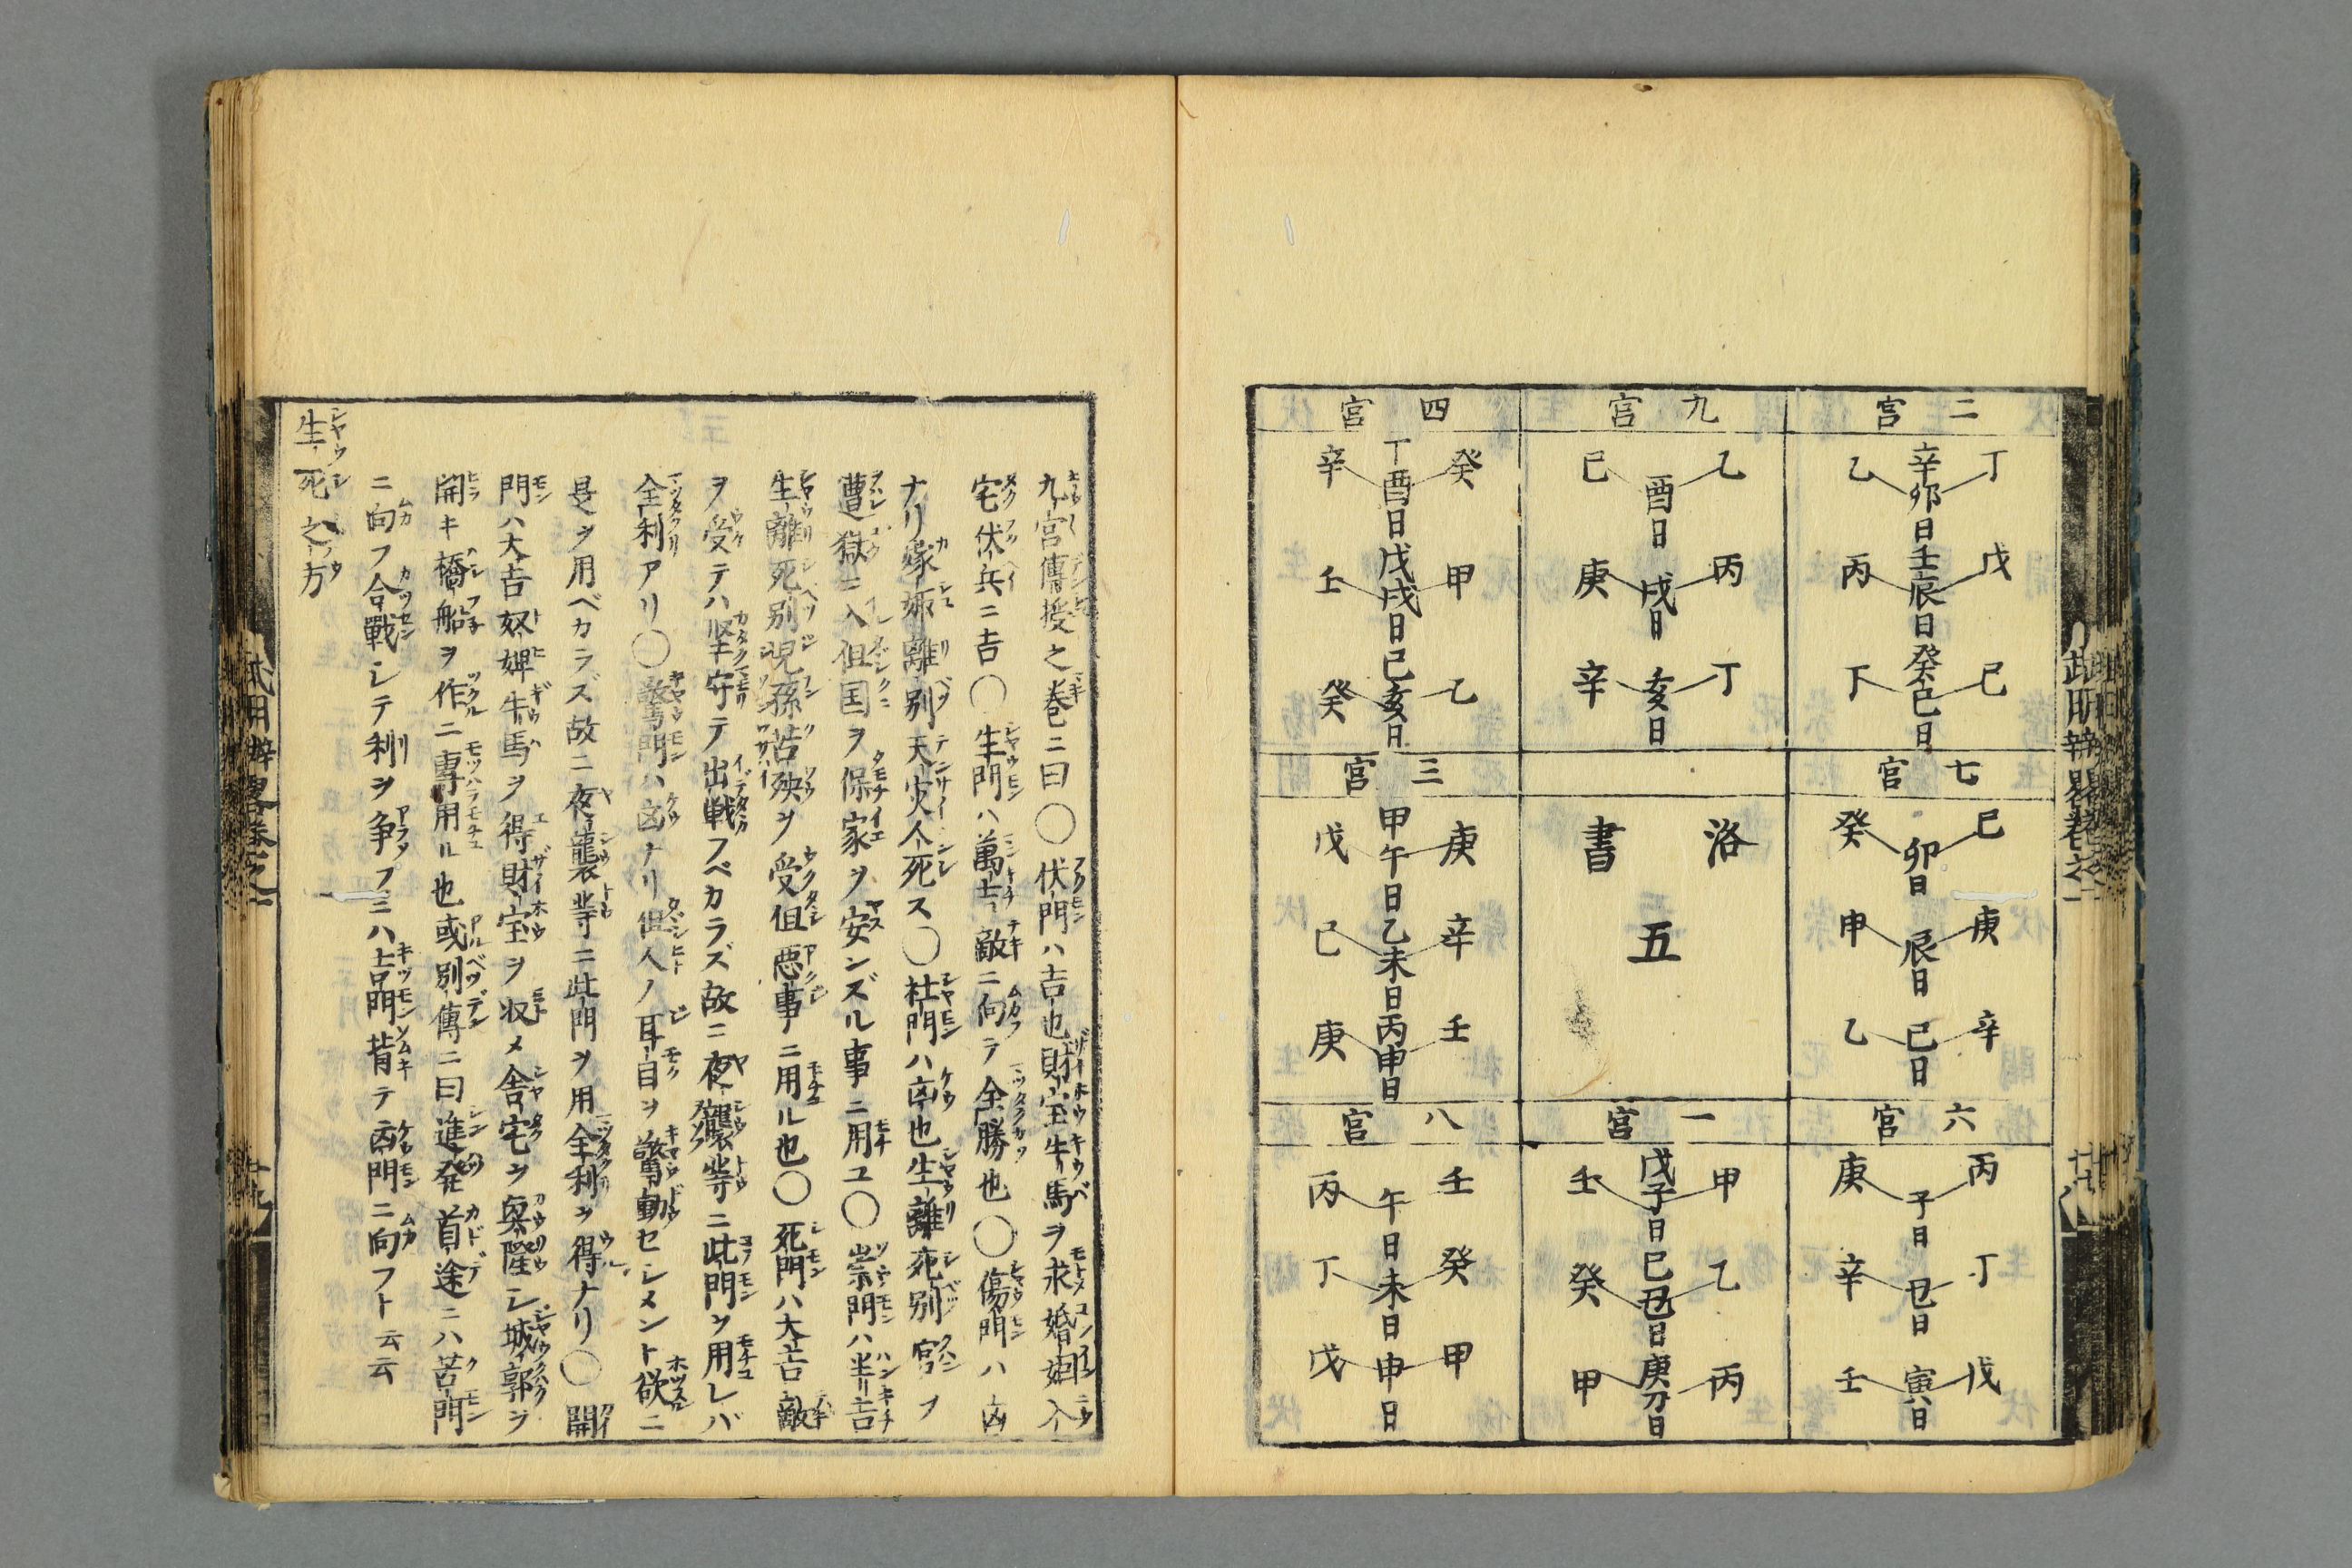 二宮
丁 辛卯日 乙
戊 壬辰日 丙
己 癸巳日 丁
九宮
乙 酉日 己
丙 戌日 庚
丁 亥日 辛
四宮
癸 丁酉日 辛
甲 戊戌日 壬
乙 己亥日 癸
七宮
己 卯日 癸
庚 辰日 甲
辛 巳日 乙
洛書
五
三宮
庚 甲午日 戊
辛 乙未日 己
壬 丙申日 庚
六宮
丙 子日 庚
丁 丑日 辛
戊 寅日 壬
一宮
甲 戊子日 壬
乙 己丑日 癸
丙 庚刁日 甲
八宮
壬 午日 丙
癸 未日 丁
甲 申日 戊
九宮傳授之巻ニ曰〇伏門ハ吉也財宝牛馬ヲ求婚姻入
宅伏兵ニ吉〇生門ハ萬吉敵ニ向テ全勝也〇傷門ハ凶
ナリ嫁娵離別天災人死ス〇杜門ハ凶也生離死別官ヲ
遭獄ニ入但国ヲ保家ヲ安ンズル事ニ用ユ〇崇門ハ半吉
生離死別児孫苦殃ヲ受但悪事ニ用ル也〇死門ハ大吉敵
ヲ受テハ堅守テ出戦フベカラズ故ニ夜襲等ニ此門ヲ用レバ
全利アリ〇驚門ハ凶ナリ但人ノ耳目ヲ驚動セシメント欲ニ
是ヲ用ベカラズ故ニ夜襲等ニ此門ヲ用全利ヲ得ナリ〇開
門ハ大吉奴婢牛馬ヲ得財宝ヲ収メ舎宅ヲ興隆シ城郭ヲ
開キ橋船ヲ作ニ專用ル也或別傳ニ曰進発首途ニハ苦門
ニ向フ合戰シテ利ヲ争フニハ吉門背テ凶門ニ向フト云云
生死之方